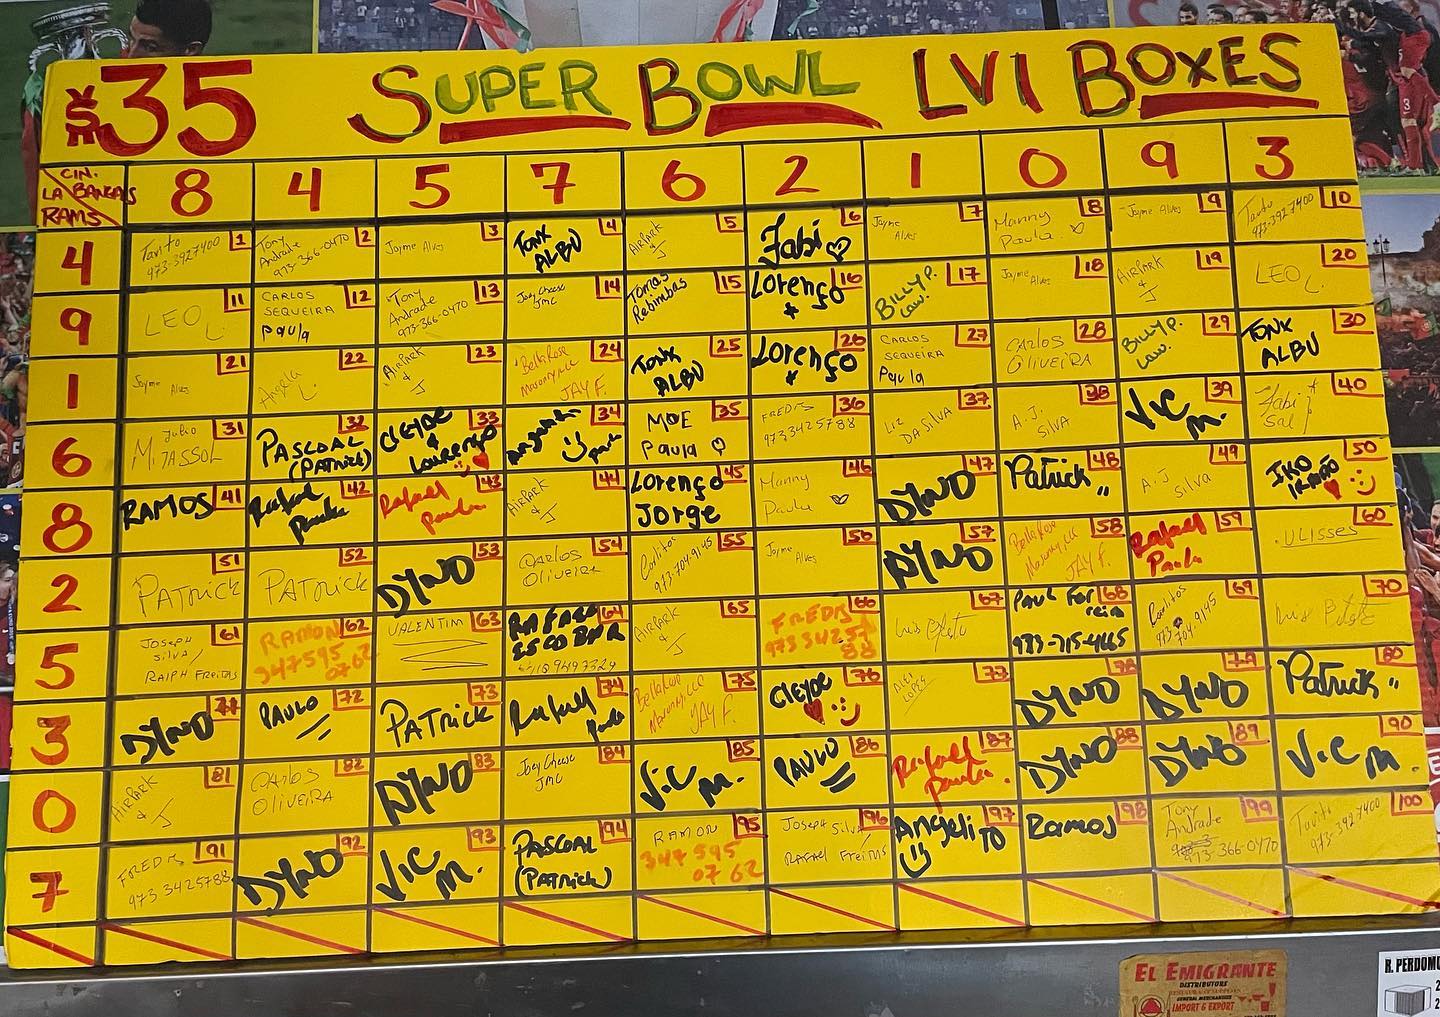 $35 SUPER BOWL LVI BOXES
CIN. BANGALS
LA RAMS
8 4 5 7 6 2 1 0 9 3
4
Tavito 973-3927400 1
Tony Andrade 973-366-0470 2
Jayme Alves 3
TONX ALBU 4
AirPark & J 5
Fabi 6
Jayme Alves 7
Manny Paula 8
Jayme Alves 9
Tavito 973-3927400 10
9
LEO L. 11
CARLOS SEQUEIRA Paula 12
Tony Andrade 973-366-0470 13
Joey Cheese JMC 14
Tomas Rebimbas 15
Lorenço 16
BILLY P. Law. 17
Jayme Alves 18
AIRPARK & J 19
LEO L. 20
1
Jayme Alves 21
Angela L. 22
AirPark & J 23
BellaRose Masonry, LLC JAY F. 24
TONX ALBU 25
Lorenço 26
CARLOS SEQUEIRA Paula 27
CARLOS OLIVEIRA 28
BILLY P. Law. 29
TONX ALBU 30
6
Julio M. TASSOL 31
PASCOAL (PATRICK) 32
CLEYDE & Lourenço 33
34
MOE Paula 35
FREDIS 9733425788 36
LIZ DASILVA 37
A.J. SILVA 38
VIC M. 39
Fabi Sal 40
8
RAMOS 41
Rafael Paula 42
Rafael Paula 43
AIRPARK & J 44
Lorenço Jorge 45
Manny Paula 46
DYNO 47
Patrick 48
A.J. Silva 49
50
2
PATRICK 51
PATRICK 52
DYNO 53
CARLOS OLIVEIRA 54
Carlitos 973-704-9145 55
Jayme Alves 56
DYNO 57
BellaRose Masonry, LLC JAY F. 58
Rafael Paula 59
ULISSES 60
5
JOSEPH SILVA/ RALPH FREITAS 61
RAMON 347595 0762 62
VALENTIM 63
RAFAEL ESCOBAR 64
AIRPARK & J 65
FREDIS 9733425788 66
Luis 67
PAUL Ferreira 973-715-4465 68
Carlitos 973 704-9145 69
Luis 70
3
DYNO 71
PAULO 72
PATRICK 73
Rafael Paula 74
BellaRose Masonry, LLC JAY F. 75
CLEYDE 76
ALEX LOPES 77
DYNO 78
DYNO 79
Patrick 80
0
AIRPARK & J 81
CARLOS OLIVEIRA 82
DYNO 83
Joey Cheese JMC 84
VIC M. 85
PAULO 86
Rafael Paula 87
DYNO 88
DYNO 89
VIC M. 90
7
FREDIS 973.3425788 91
DYNO 92
VIC M. 93
PASCOAL (PATRICK) 94
RAMON 347 595 0762 95
Joseph Silva/ RAFAEL FREITAS 96
Angelito 97
Ramos 98
Tony Andrade 973-366-0470 99
Tavito 973-3927400 100
EL EMIGRANTE
DISTRIBUTORS
GENERAL MERCHANDISE
IMPORT & EXPORT
R. PERDOMO